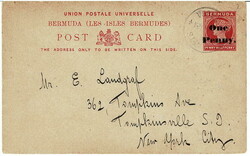 UNION POSTALE UNIVERSELLE
BERMUDA (LES ISLES BERMUDES)
POST CARD
THE ADDRESS ONLY TO BE WRITTEN ON THIS SIDE.
BERMUDA
One
Penny.
Mr. E. Landgraf
362, Tompkins Ave
Tompkinsville S.I.
New York
City